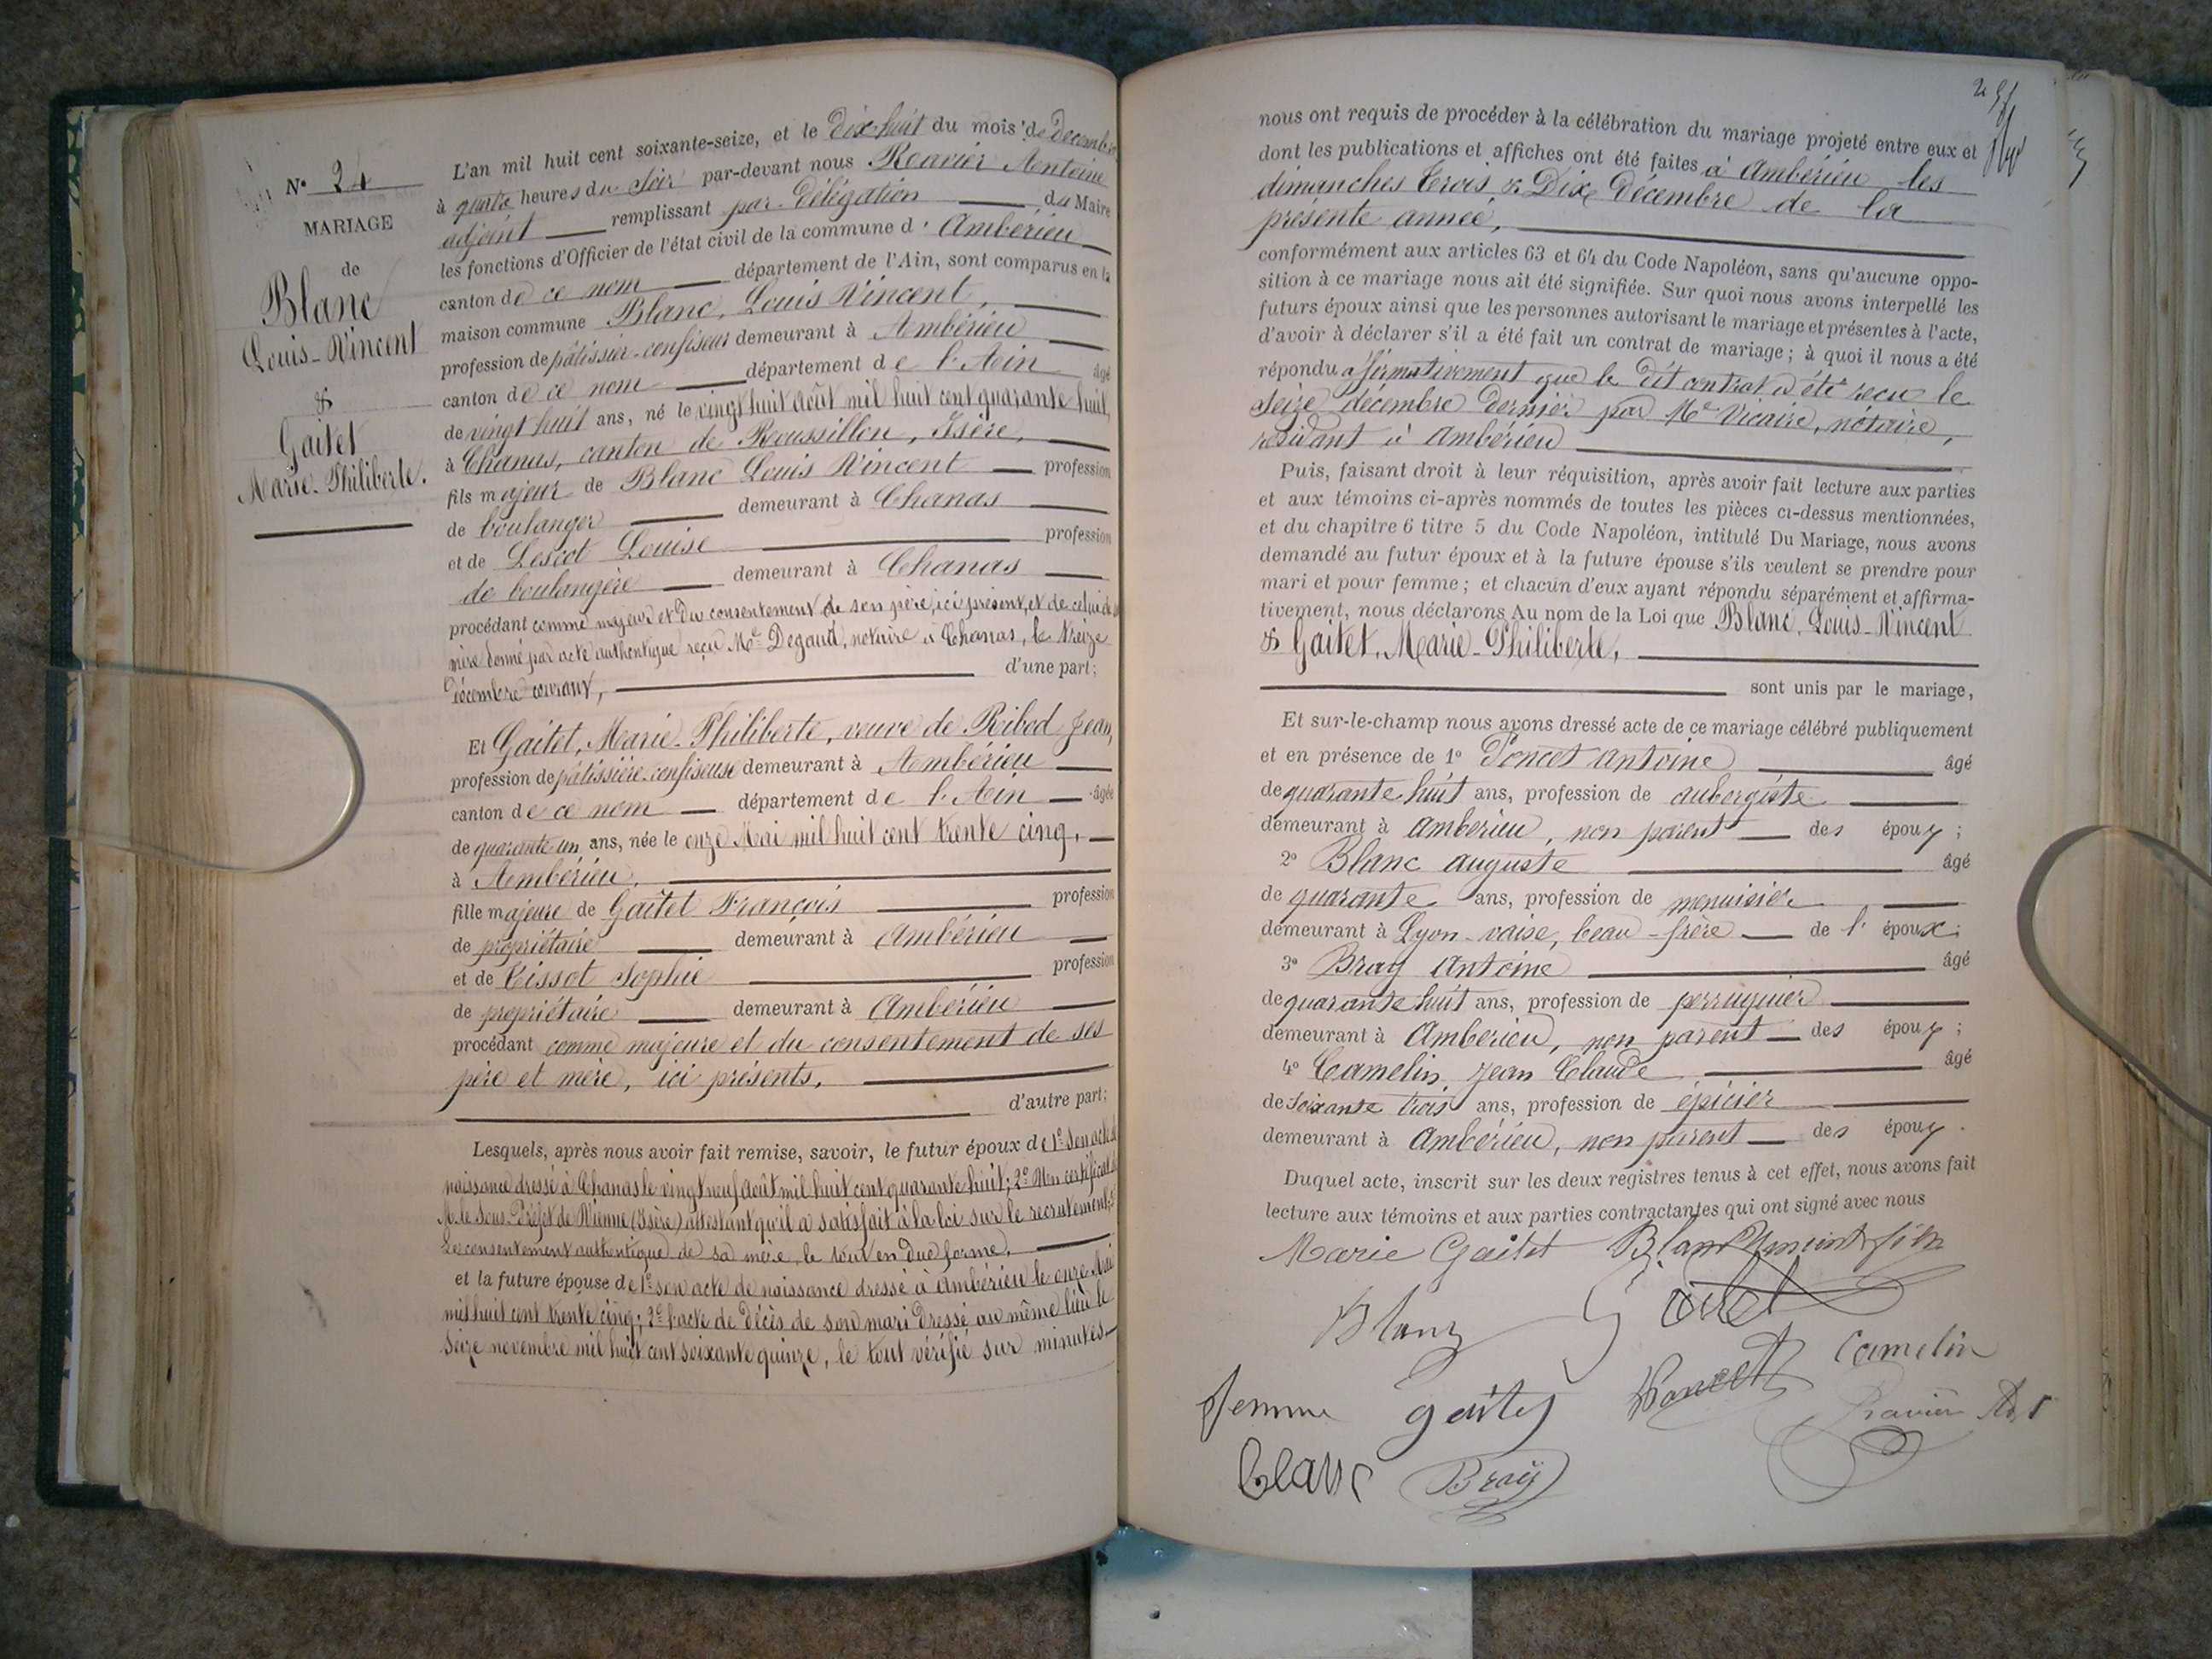 N° 24
MARIAGE
de
Blanc
Louis-Vincent
&
Gaitet
Marie-Philiberte.
L'an mil huit cent soixante-seize, et le dix-huit du mois de décembre
à quatre heures du soir par-devant nous Ravier Antoine
adjoint remplissant par délégation du Maire
les fonctions d'Officier de l'état civil de la commune d'Ambérieu
canton de ce nom département de l'Ain, sont comparus en la
maison commune Blanc, Louis Vincent,
profession de pâtissier-confiseur demeurant à Ambérieu
canton de ce nom département de l'Ain âgé
de vingt huit ans, né le vingt huit août mil huit cent quarante huit,
à Chanas, canton de Roussillon, Isère,
fils majeur de Blanc Louis Vincent profession
de boulanger demeurant à Chanas
et de Lescot Louise profession
de boulangère demeurant à Chanas
procédant comme majeur et du consentement de son père, ici présent, et de celui de sa
mère donné par acte authentique reçu Me Degaud, notaire à Chanas, le treize
décembre courant, d'une part;
Et Gaitet, Marie-Philiberte, veuve de Ribod Jean,
profession de pâtissière-confiseuse demeurant à Ambérieu
canton de ce nom département de l'Ain âgée
de quarante-un ans, née le onze Mai mil huit cent trente cinq,
à Ambérieu,
fille majeure de Gaitet François profession
de propriétaire demeurant à Ambérieu
et de Tissot Sophie profession
de propriétaire demeurant à Ambérieu
procédant comme majeure et du consentement de ses
père et mère, ici présents,
d'autre part;
Lesquels, après nous avoir fait remise, savoir, le futur époux de 1° son acte de
naissance dressé à Chanas le vingt neuf août mil huit cent quarante huit; 2° Un certificat de
M. le Sous-Préfet de Vienne (Isère) attestant qu'il a satisfait à la loi sur le recrutement; 3°
Le consentement authentique de sa mère, le tout en due forme,
et la future épouse de 1° son acte de naissance dressé à Ambérieu le onze Mai
mil huit cent trente cinq; 2° l'acte de décès de son mari dressé au même lieu le
seize novembre mil huit cent soixante quinze, le tout vérifié sur minutes
nous ont requis de procéder à la célébration du mariage projeté entre eux et
dont les publications et affiches ont été faites à Ambérieu les
dimanches trois & dix décembre de la
présente année,
conformément aux articles 63 et 64 du Code Napoléon, sans qu'aucune oppo-
sition à ce mariage nous ait été signifiée. Sur quoi nous avons interpellé les
futurs époux ainsi que les personnes autorisant le mariage et présentes à l'acte,
d'avoir à déclarer s'il a été fait un contrat de mariage; à quoi il nous a été
répondu affirmativement que le dit contrat a été reçu le
seize décembre dernier par Me Vicaire, notaire,
résidant à Ambérieu
Puis, faisant droit à leur réquisition, après avoir fait lecture aux parties
et aux témoins ci-après nommés de toutes les pièces ci-dessus mentionnées,
et du chapitre 6 titre 5 du Code Napoléon, intitulé Du Mariage, nous avons
demandé au futur époux et à la future épouse s'ils veulent se prendre pour
mari et pour femme; et chacun d'eux ayant répondu séparément et affirma-
tivement, nous déclarons Au nom de la Loi que Blanc, Louis-Vincent
& Gaitet, Marie-Philiberte,
sont unis par le mariage,
Et sur-le-champ nous avons dressé acte de ce mariage célébré publiquement
et en présence de 1° Poncet Antoine âgé
de quarante huit ans, profession de aubergiste
demeurant à Ambérieu, non parent des époux;
2° Blanc Auguste âgé
de quarante ans, profession de menuisier
demeurant à Lyon-vaise, beau-frère de l'époux;
3° Bray Antoine âgé
de quarante huit ans, profession de perruquier
demeurant à Ambérieu, non parent des époux;
4° Camelin Jean Claude âgé
de soixante trois ans, profession de épicier
demeurant à Ambérieu, non parent des époux.
Duquel acte, inscrit sur les deux registres tenus à cet effet, nous avons fait
lecture aux témoins et aux parties contractantes qui ont signé avec nous
Marie Gaitet Blanc Vincent fils
Blanc Gaitet
Camelin
femme gaitet Poncet Ravier Adt
Blanc Bray